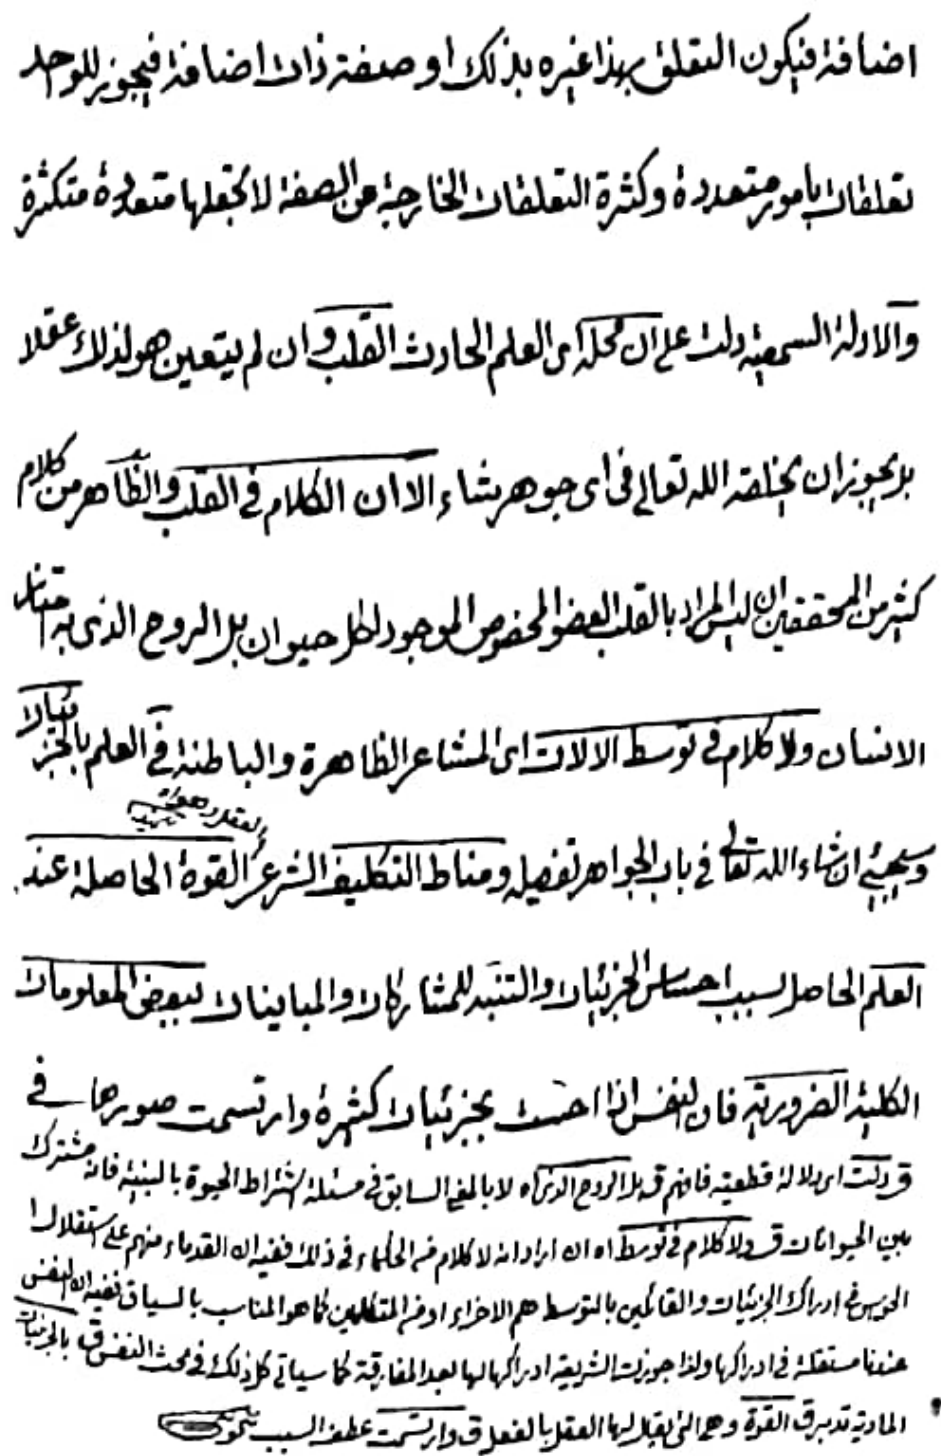 اضافة فيكون التعلق بهذا غيره بذلك او صفة ذات اضافة فيجوز للواحد
تعلقات بامور متعددة وكثرة التعلقات الخارجية عن الصفة لا تجعلها متعددة متكثرة
والادلة السمعية دلت على ان محله اى العلم الحادث القلب وان لم يتعين هو لذلك عقلا
بل يجوز ان يخلقه الله تعالى فى اى جوهر شاء الا ان الكلام فى القلب والظاهر من كلام
كثير من المحققين ان ليس المراد بالقلب العضو المخصوص الموجود لكل حيوان بل الروح الذى به امتياز
الانسان ولا كلام فى توسط الالات اى المشاعر الظاهرة والباطنة فى العلم بالجزئيات
وسيجيئ ان شاء الله تعالى فى باب الجواهر تفصيله ومناط التكليف الشرعى القوة الحاصلة عند
العقل وهو
العلم الحاصل بسبب احساس الجزئيات والتنبه للمشاركات والمباينات ببعض المعلومات
الكلية الضرورية فان النفس اذا احست بجزئيات كثيرة وارتسمت صورها فى
ق دلت اى دلالة قطعية فافهم ق بل الروح الذى اه لا بالمعنى السابق فى مسئلة اشتراط الحيوة بالبنية فانه مشترك
بين الحيوانات ق ولا كلام فى توسط اه ان اراد انه لا كلام من الحكماء فى ذلك ففيه ان القدماء منهم على استقلال
الحواس فى ادراك الجزئيات والقائلين بالتوسط هم الاخراء او من المتكلمين كما هو المناسب بالسياق ففيه ان النفس
عندنا مستقلة فى ادراكها ولذا جوزت الشريعة ادراكها لها بعد المفارقة كما سياتى كل ذلك فى بحث النفس ق بالجزئيات
المادية تدبر ق القوة وهى التى يقال لها العقل بالفعل ق وارتسمت عطف السبب